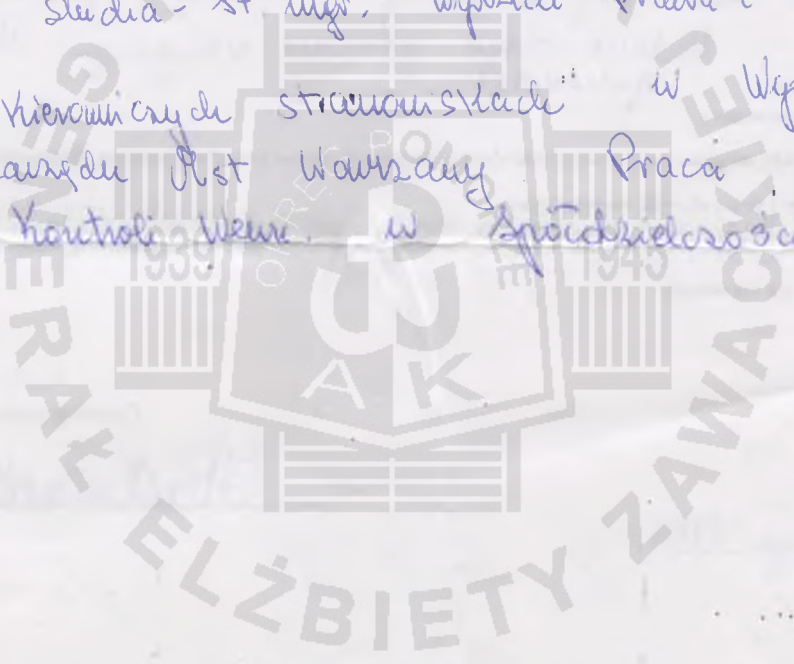 studia - st mgr. wydział Prawa i
kierowniczych stanowiskach w Wy
arządu M.st Warszawy Praca
kontroli wewn. w spółdzielczośc
GENERAŁ ELŻBIETY ZAWACKIEJ
OKRĘG POMORZE
1939 1945
AK